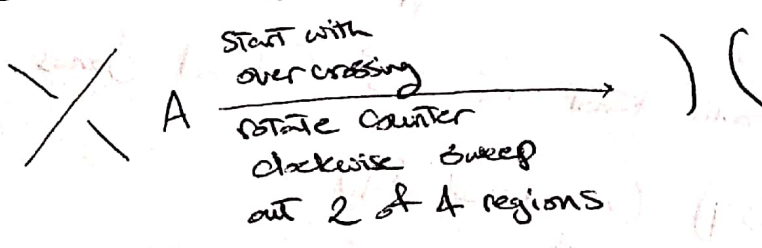 start with
over crossing
A
rotate counter
clockwise sweep
out 2 of 4 regions